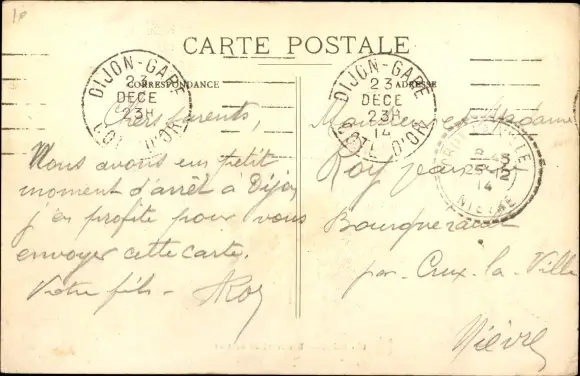 CARTE POSTALE
CORRESPONDANCE
ADRESSE
DIJON-GARE
23
DECE
23H
COTE D'OR
DIJON-GARE
23
DECE
23H
14
COTE D'OR
14
NIEVRE
Chers Parents,
Nous avons un petit
moment d'arrêt à Dijon
j'en profite pour vous
envoyer cette carte.
Votre fils - ARoy
Monsieur et Madame
Roy
par - Crux-la-Ville
Nièvre